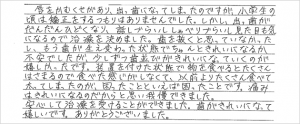 唇をかむくせがあり、出っ歯になってしまったのですが、小学生の
頃は矯正をするつもりはありませんでした。しかし、出っ歯が
だんだんひどくなり、話しづらいししゃべりづらいし、見た目も気
になるので治療を決めました。歯を抜くと思っていなかったし、
し、もう歯が生え変わった状態でちゃんときれいになるか
不安でしたが、少しずつ歯並びがきれいになっていくのが
嬉しかったです。装置を付けた状態で物を食べるとたくさん
はさまるので食べた感じがしなくて、以前よりたくさん食べて
しまったのが、困ったことといえば困ったことです。痛みは
きれいになるのだからと思い我慢できました。
安心して治療を受けることができました。歯がきれいになって
嬉しいです。ありがとうございました。